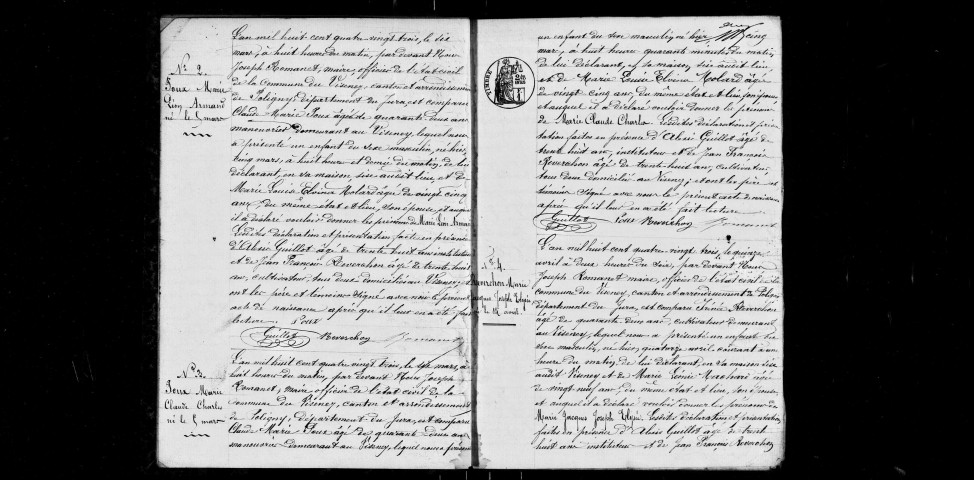 N° 2.
Joux Marie
Léon Armand
né le 5 mars
L'an mil huit cent quatre vingt trois, le six
mars, à huit heures du matin, par devant Nous
Joseph Romanet, maire, officier de l'état civil
de la Commune du Viseney, canton et arrondissement
de Poligny, département du Jura, est comparu
Claude Marie Joux âgé de quarante deux ans
manouvrier demeurant au Viseney, lequel nous
a présenté un enfant du sexe masculin, né hier,
cinq mars, à huit heures et demie du matin, de lui
déclarant, en sa maison, sise audit lieu, et de
Marie Louise Elvina Molard âgée de vingt cinq
ans, du même état et lieu, son épouse, et auquel
il a déclaré vouloir donner les prénoms de Marie Léon Armand
Lesdites déclaration et présentation faites en présence
d'Alexis Guillot âgé de trente huit ans instituteur
et de Jean François Reverchon âgé de trente huit
ans, cultivateur, tous deux domiciliés au Viseney, et
ont les père et témoins signé avec nous le présent
acte de naissance après qu'il leur en a été fait
lecture. Joux
Guillot Reverchon Romanet
N° 3.
Joux Marie
Claude Charles
né le 5 mars
L'an mil huit cent quatre vingt trois, le six mars, à
huit heures du matin, par devant Nous Joseph
Romanet, maire, officier de l'état civil de la
commune du Viseney, canton et arrondissement
de Poligny, département du Jura, est comparu
Claude Marie Joux âgé de quarante deux ans
manouvrier demeurant au Viseney, lequel nous a présenté
un enfant du sexe masculin, né hier cinq
mars, à huit heures quarante minutes du matin,
de lui déclarant, en sa maison, sise audit lieu
et de Marie Louise Elvina Molard âgée
de vingt cinq ans, du même état et lieu, son épouse
et auquel il a déclaré vouloir donner les prénoms
de Marie Claude Charles. Lesdites déclaration et présen-
tation faites en présence d'Alexis Guillot âgé de
trente huit ans, instituteur et de Jean François
Reverchon âgé de trente-huit ans, cultivateur,
tous deux domiciliés au Viseney; et ont les père et
témoins signé avec nous le présent acte de naissance
après qu'il leur en a été fait lecture.
Guillot Joux Reverchon Romanet
N° 4.
Reverchon Marie
Jacques Joseph
né le 14 avril
L'an mil huit cent quatre-vingt trois, le quinze
avril à deux heures du soir, par devant Nous
Joseph Romanet maire, officier de l'état civil de la
commune du Viseney, canton et arrondissement de Poligny
département du Jura, est comparu Reverchon
âgé de quarante deux ans, cultivateur demeurant
au Viseney, lequel nous a présenté un enfant du
sexe masculin, né hier, quatorze avril courant à une
heure du matin, de lui déclarant, en sa maison sise
audit Viseney et de Marie
de vingt neuf ans du même état et lieu, son épouse
et auquel il a déclaré vouloir donner les prénoms de
Marie Jacques Joseph. Lesdites déclaration et présentation
faites en présence d'Alexis Guillot âgé de trente
huit ans instituteur et de Jean François Reverchon